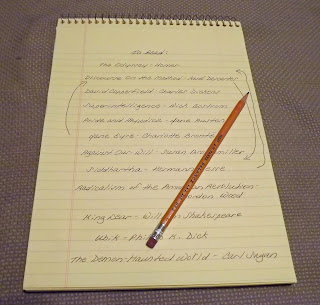 To Read:
The Odyssey - Homer
Discourse On the Method - René Descartes
David Copperfield - Charles Dickens
Superintelligence - Nick Bostrom
Pride and Prejudice - Jane Austen
Jane Eyre - Charlotte Bronte
Against Our Will - Susan Brownmiller
Siddhartha - Hermann Hesse
Radicalism of the American Revolution -
Gordon Wood
King Lear - William Shakespeare
Ubik - Philip K. Dick
The Demon-Haunted World - Carl Sagan